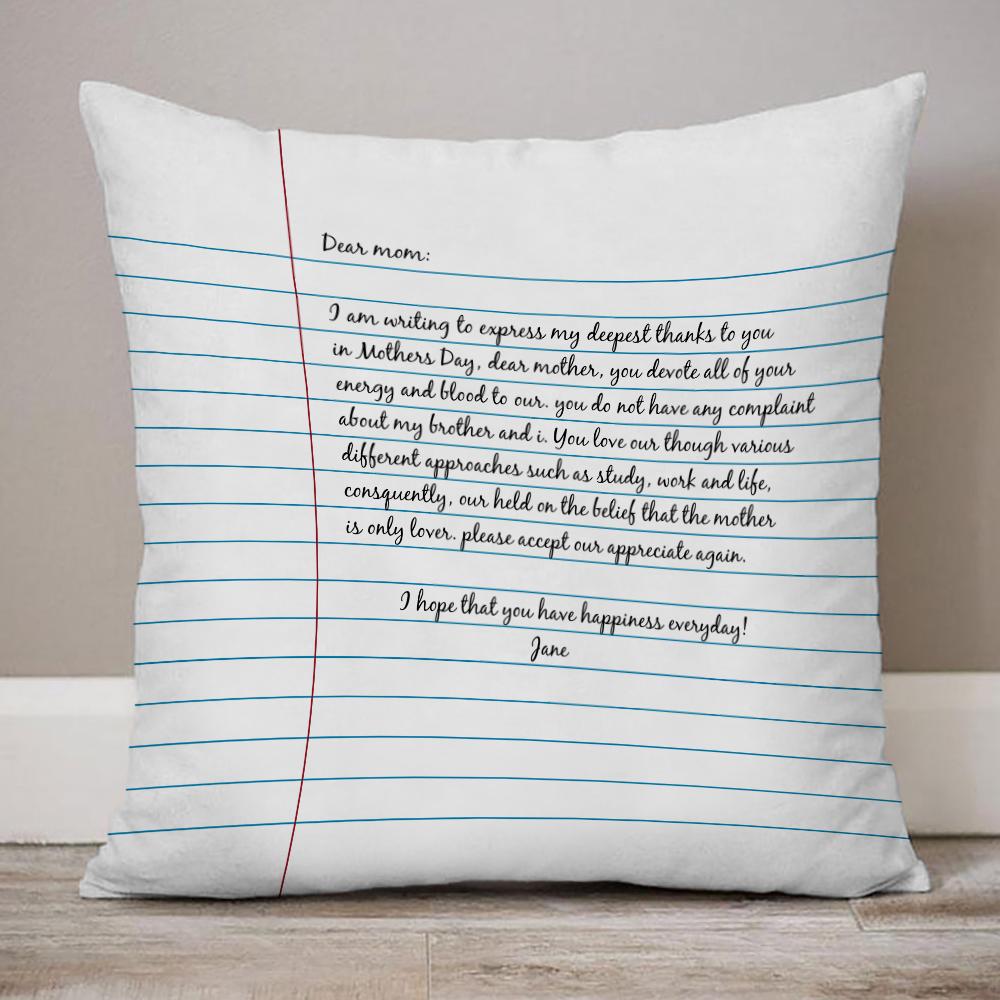 Dear mom:
I am writing to express my deepest thanks to you
in Mothers Day, dear mother, you devote all of your
energy and blood to our. you do not have any complaint
about my brother and i. You love our though various
different approaches such as study, work and life,
consquently, our held on the belief that the mother
is only lover. please accept our appreciate again.
I hope that you have happiness everyday!
Jane